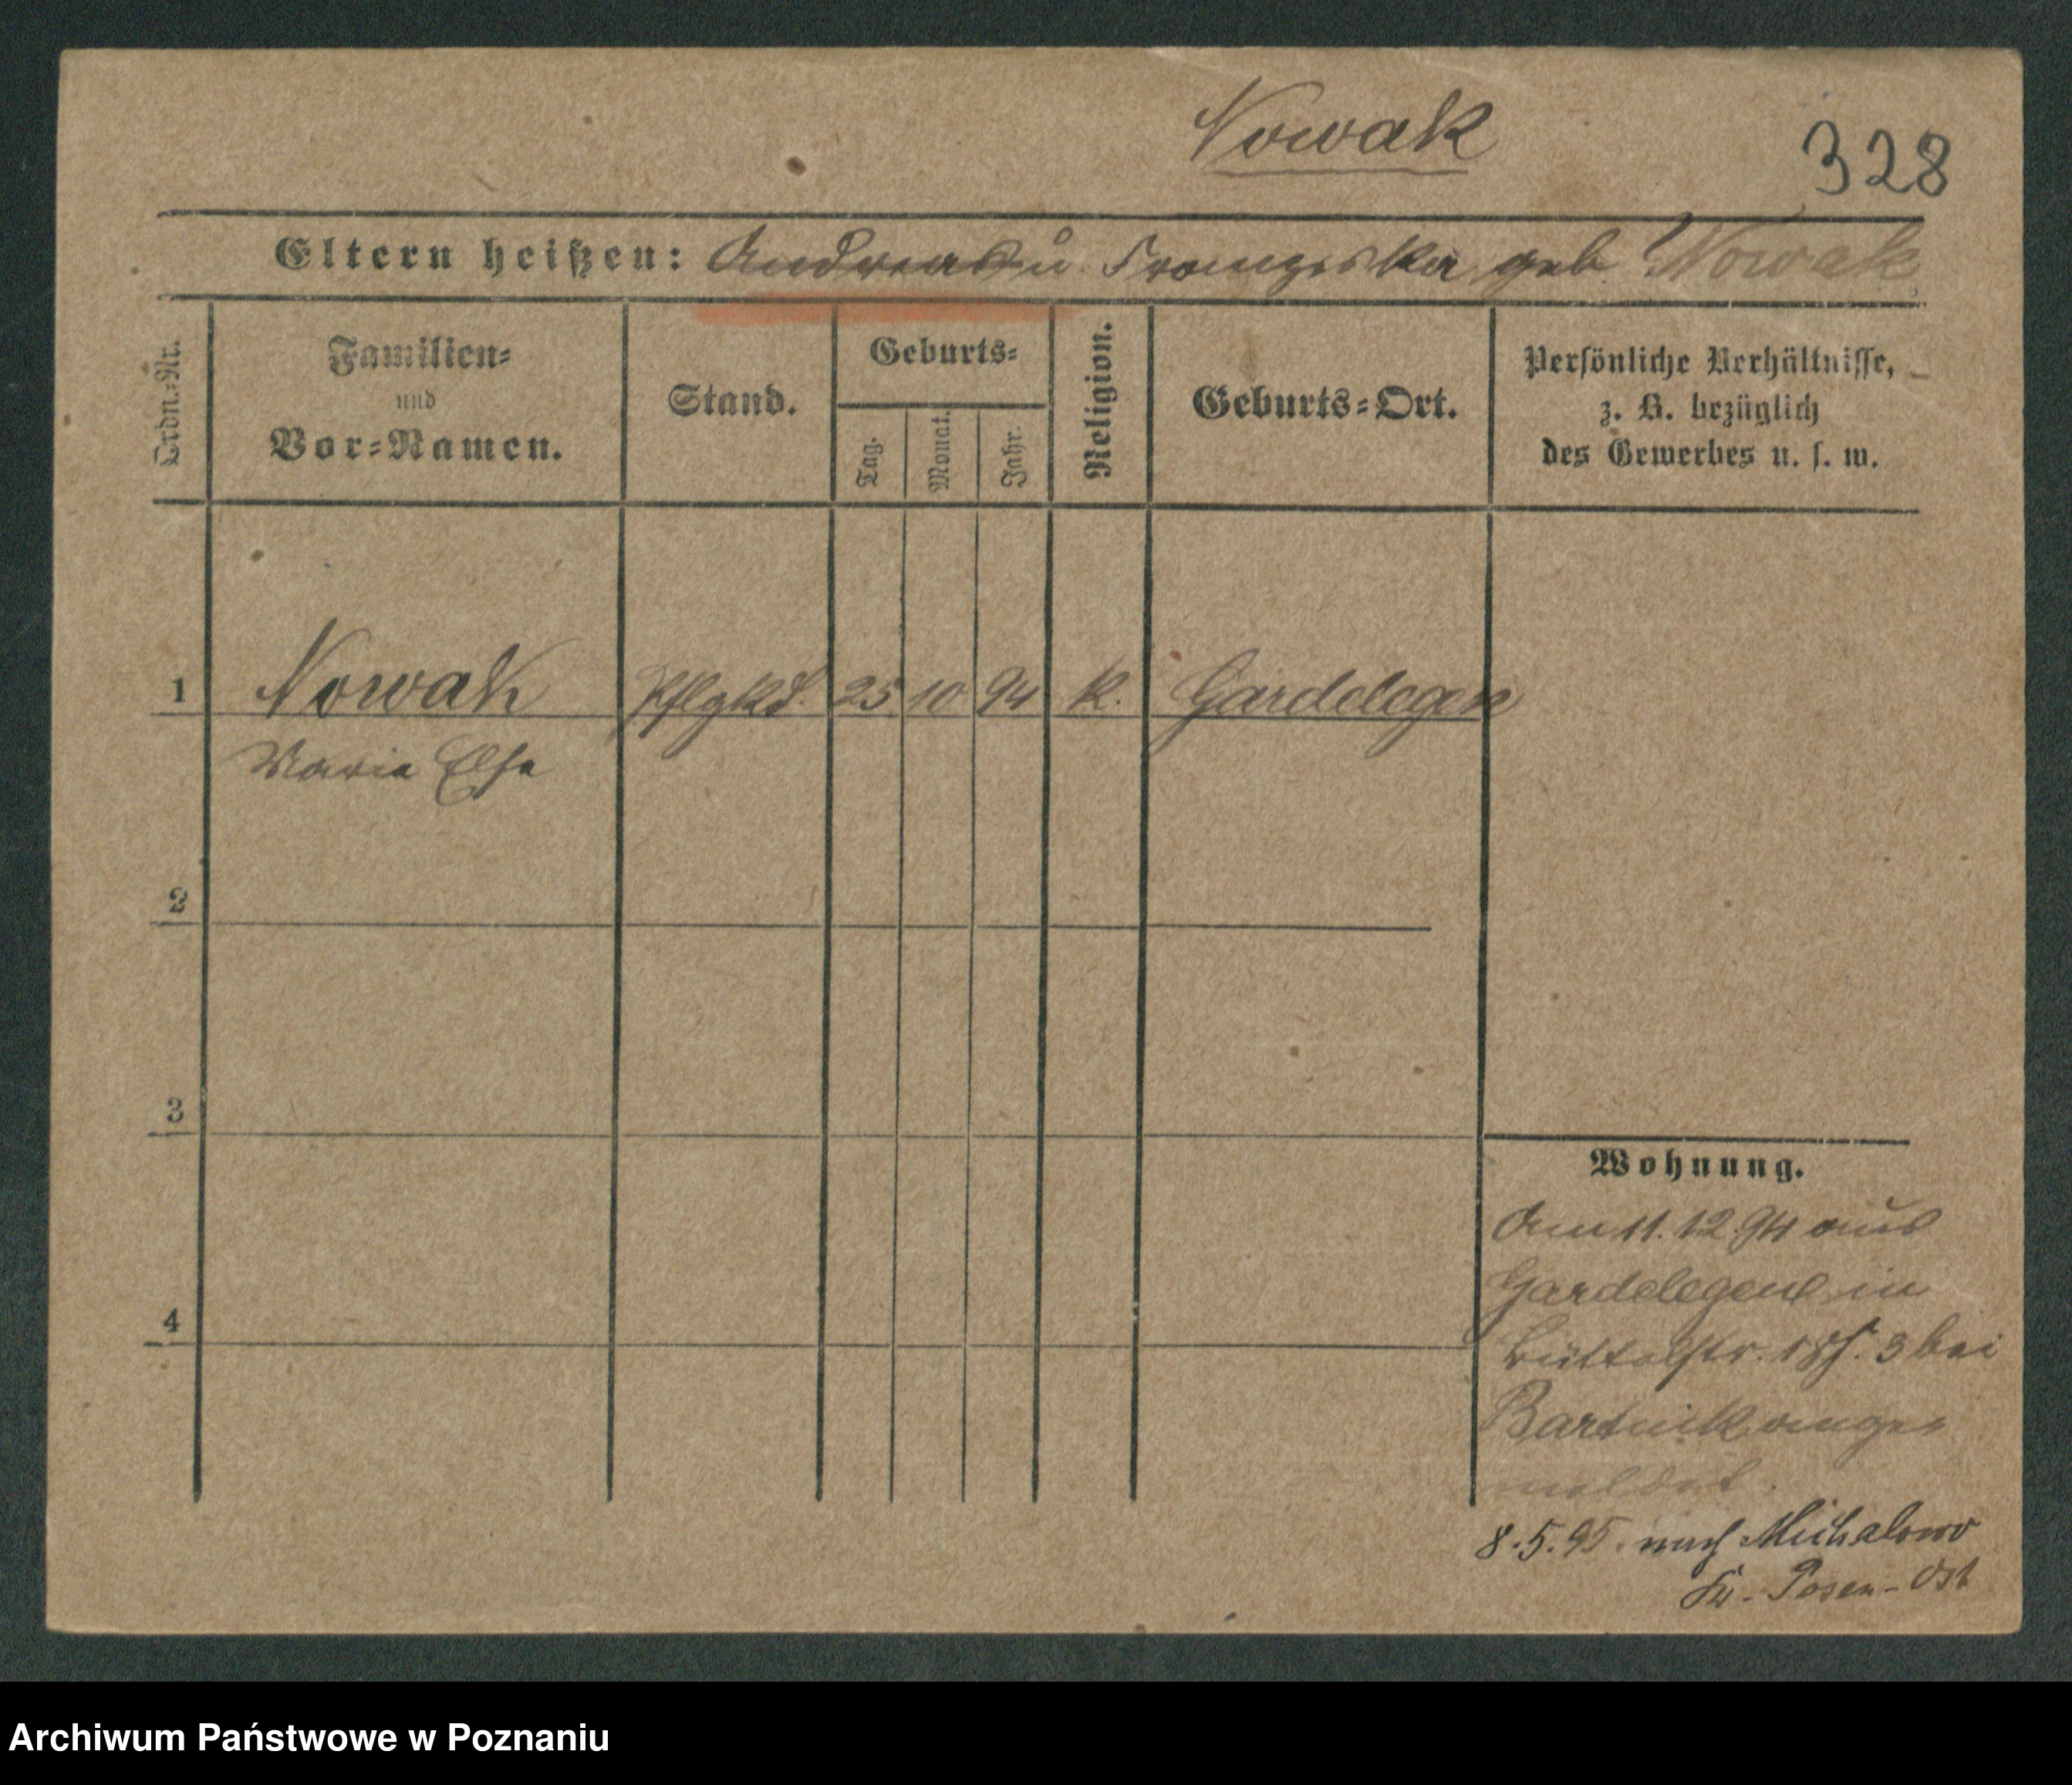 Nowak
328
Eltern heißen: Andreas u. Franziska geb Nowak
Ordn.=Nr.
Familien=
und
Vor=Namen.
Stand.
Geburts=
Tag.
Monat.
Jahr.
Religion.
Geburts=Ort.
Persönliche Verhältnisse,
z. B. bezüglich
des Gewerbes u. s. w.
1 Nowak Pflgkd. 25 10 94 K. Gardelegen
Marie Else
2
3
4
Wohnung.
Am 11.12.94 aus
Gardelegen in
Büttelstr. 18 3 bei
Bartnik ange=
meldet.
8.5.95. nach Michalowo
Kr. Posen-Ost
Archiwum Państwowe w Poznaniu